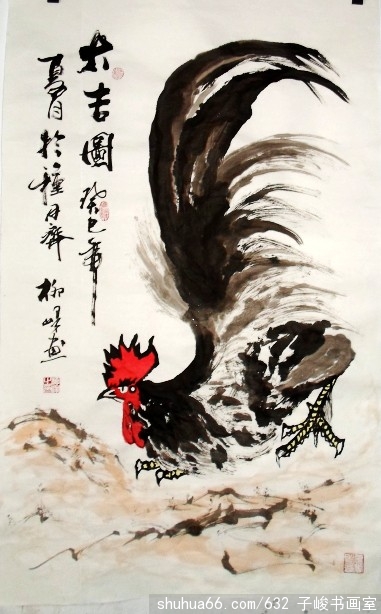 大吉圖 癸巳年
夏月於種月齋 柳峰画
shuhua66.com/632 子峻书画室